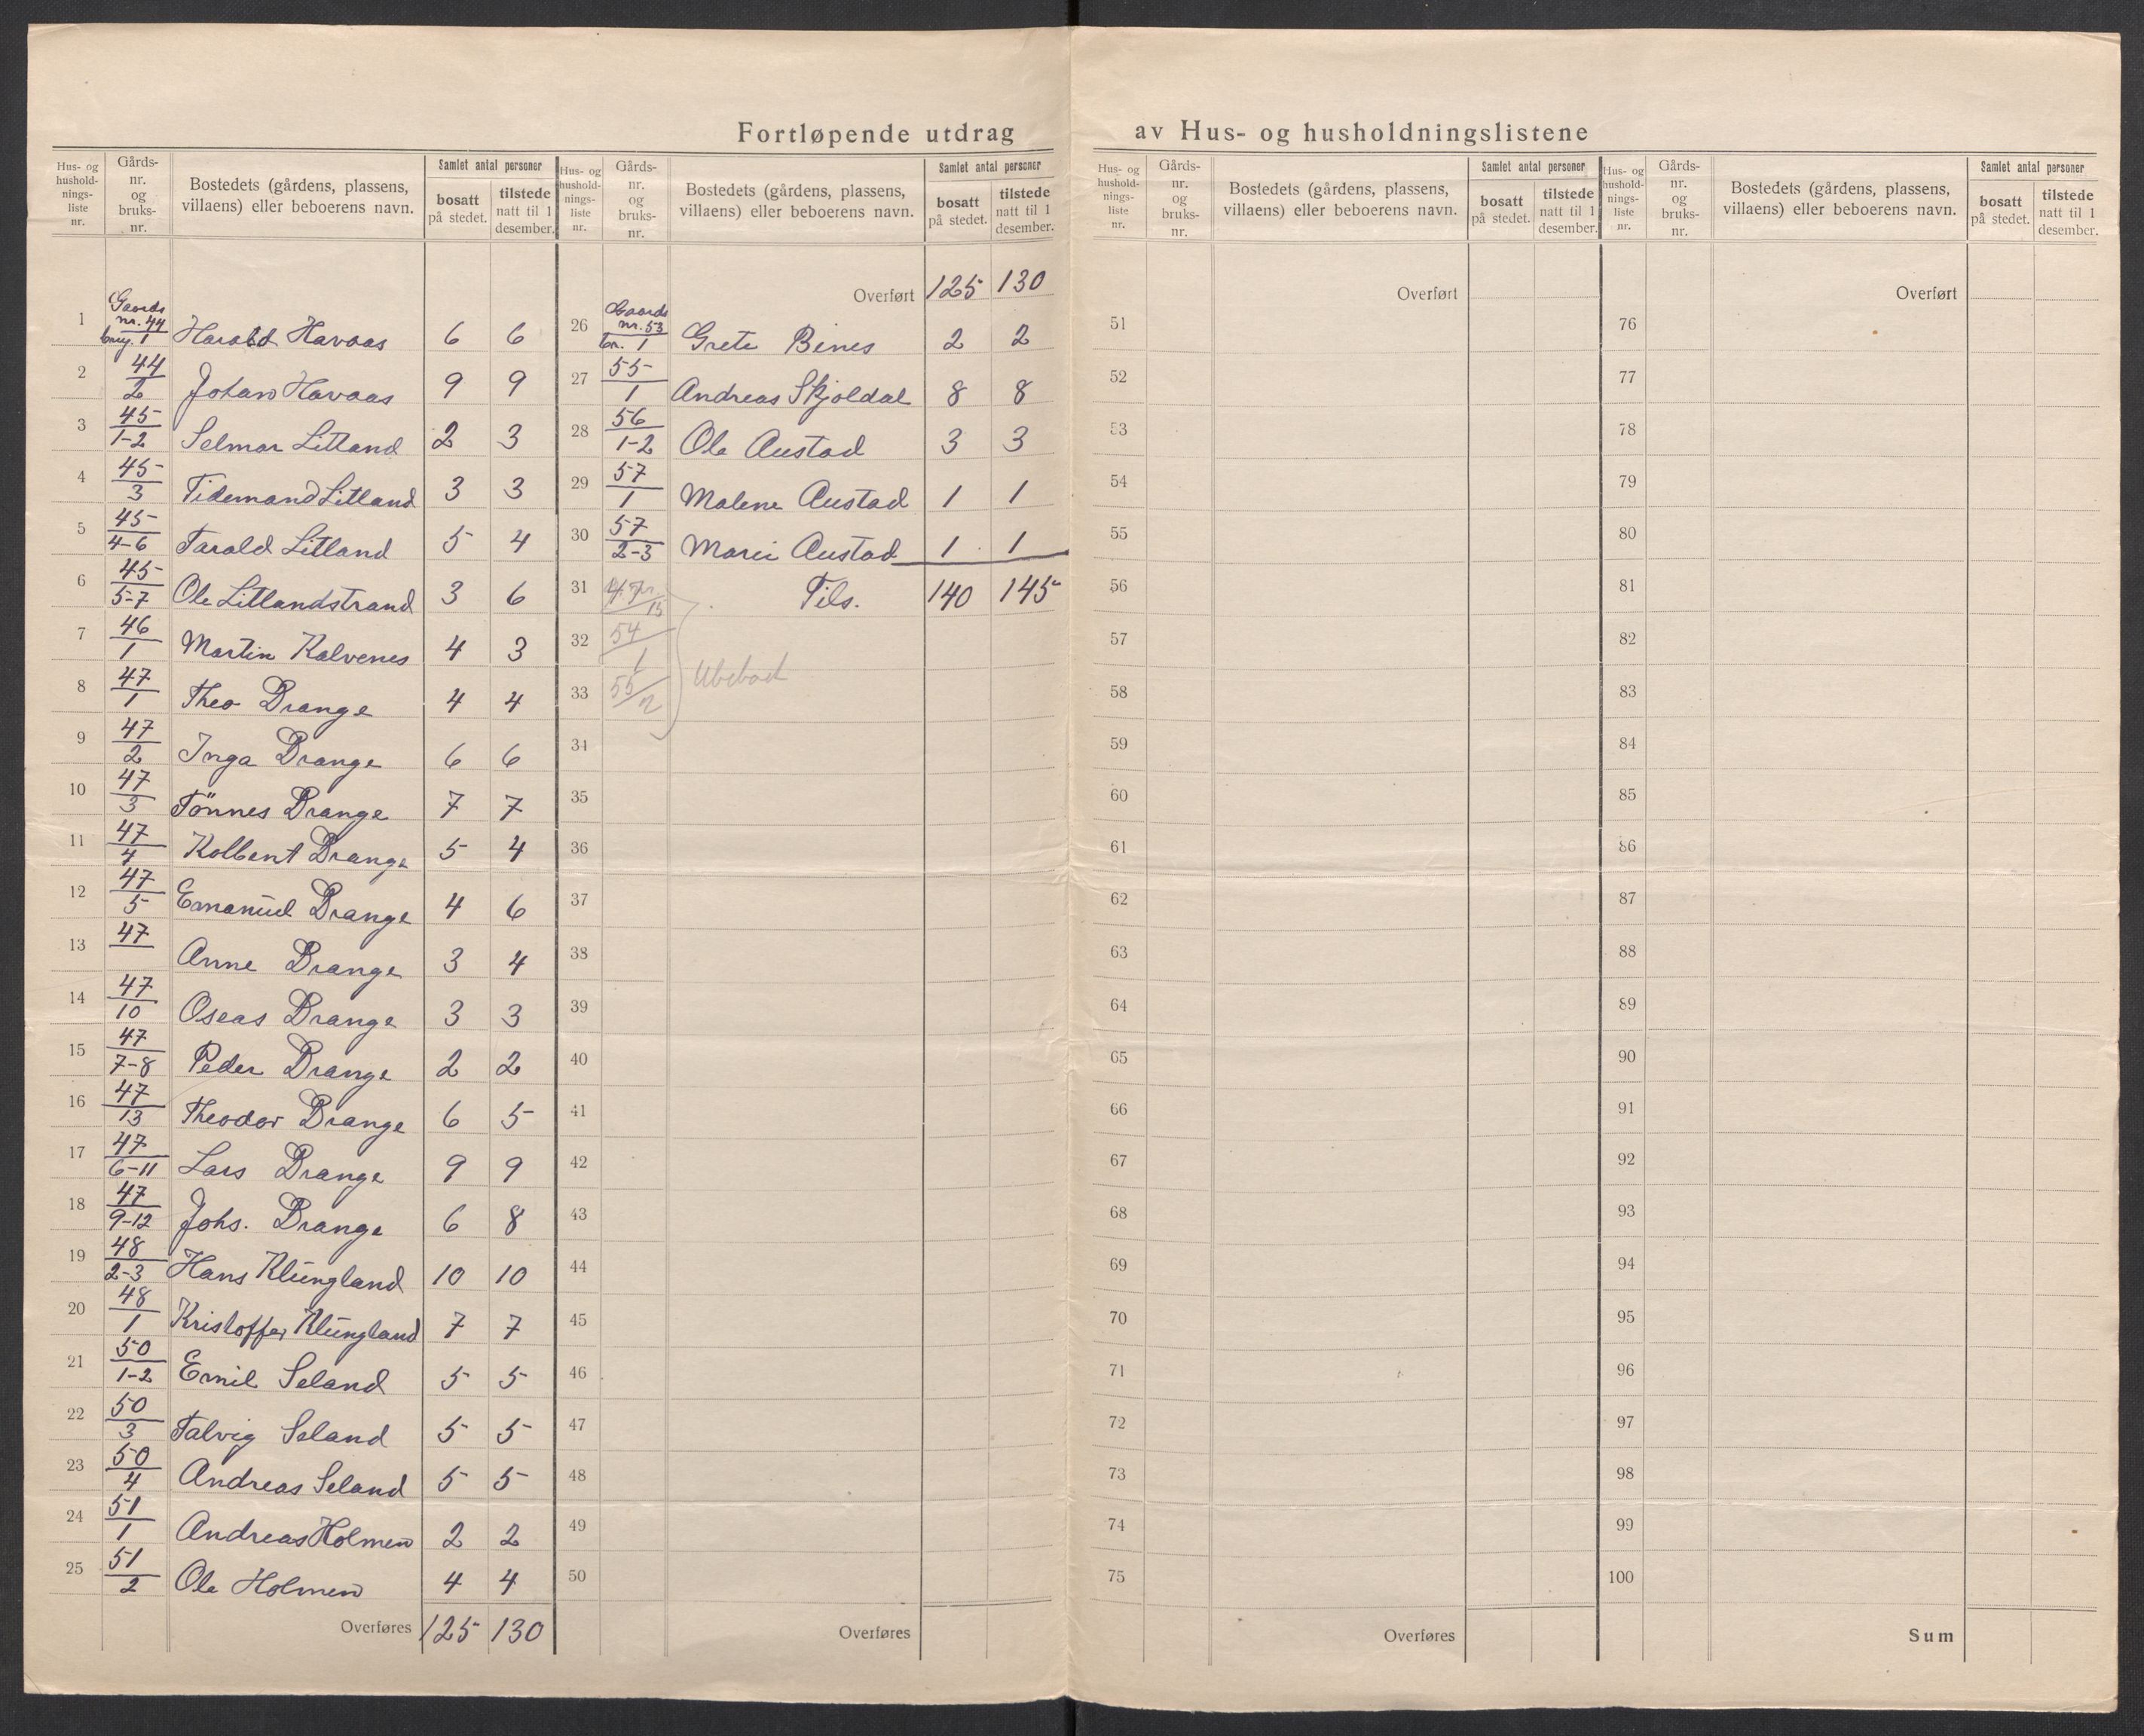 Fortløpende utdrag av Hus- og husholdningslistene
Hus- og hushold-nings-liste nr. Gårds-nr. og bruks-nr. Bostedets (gårdens, plassens, villaens) eller beboerens navn. Samlet antal personer bosatt på stedet. tilstede natt til 1 desember.
1 Gaards nr. 44 brug. 1 Harald Havaas 6 6
2 44/2 Johan Havaas 9 9
3 45/1-2 Selmar Litland 2 3
4 45/3 Tidemand Litland 3 3
5 45/4-6 Tarald Litland 5 4
6 45/5-7 Ole Litlandstrand 3 6
7 46/1 Martin Kalvenes 4 3
8 47/1 Theo Drange 4 4
9 47/2 Inga Drange 6 6
10 47/3 Tönnes Drange 7 7
11 47/4 Kolbent Drange 5 4
12 47/5 Emanuel Drange 4 6
13 47 Anne Drange 3 4
14 47/10 Oseas Drange 3 3
15 47/7-8 Peder Drange 2 2
16 47/13 Theodor Drange 6 5
17 47/6-11 Lars Drange 9 9
18 47/9-12 Johs. Drange 6 8
19 48/2-3 Hans Klungland 10 10
20 48/1 Kristoffer Klungland 7 7
21 50/1-2 Emil Seland 5 5
22 50/3 Talvig Seland 5 5
23 50/4 Andreas Seland 5 5
24 51/1 Andreas Holmen 2 2
25 51/2 Ole Holmen 4 4
Overføres 125 130
Hus- og hushold-nings-liste nr. Gårds-nr. og bruks-nr. Bostedets (gårdens, plassens, villaens) eller beboerens navn. Samlet antal personer bosatt på stedet. tilstede natt til 1 desember.
Overført 125 130
26 Gaards nr. 53 br. 1 Grete Bines 2 2
27 55/1 Andreas Skjoldal 8 8
28 56/1-2 Ole Austad 3 3
29 57/1 Malene Austad 1 1
30 57/2-3 Marie Austad 1 1
31 47/15 Tils. 140 145
32 54/1
33 55/2 Ubebod
34
35
36
37
38
39
40
41
42
43
44
45
46
47
48
49
50
Overføres
Hus- og hushold-nings-liste nr. Gårds-nr. og bruks-nr. Bostedets (gårdens, plassens, villaens) eller beboerens navn. Samlet antal personer bosatt på stedet. tilstede natt til 1 desember.
Overført
51
52
53
54
55
56
57
58
59
60
61
62
63
64
65
66
67
68
69
70
71
72
73
74
75
Overføres
Hus- og hushold-nings-liste nr. Gårds-nr. og bruks-nr. Bostedets (gårdens, plassens, villaens) eller beboerens navn. Samlet antal personer bosatt på stedet. tilstede natt til 1 desember.
Overført
76
77
78
79
80
81
82
83
84
85
86
87
88
89
90
91
92
93
94
95
96
97
98
99
100
Sum